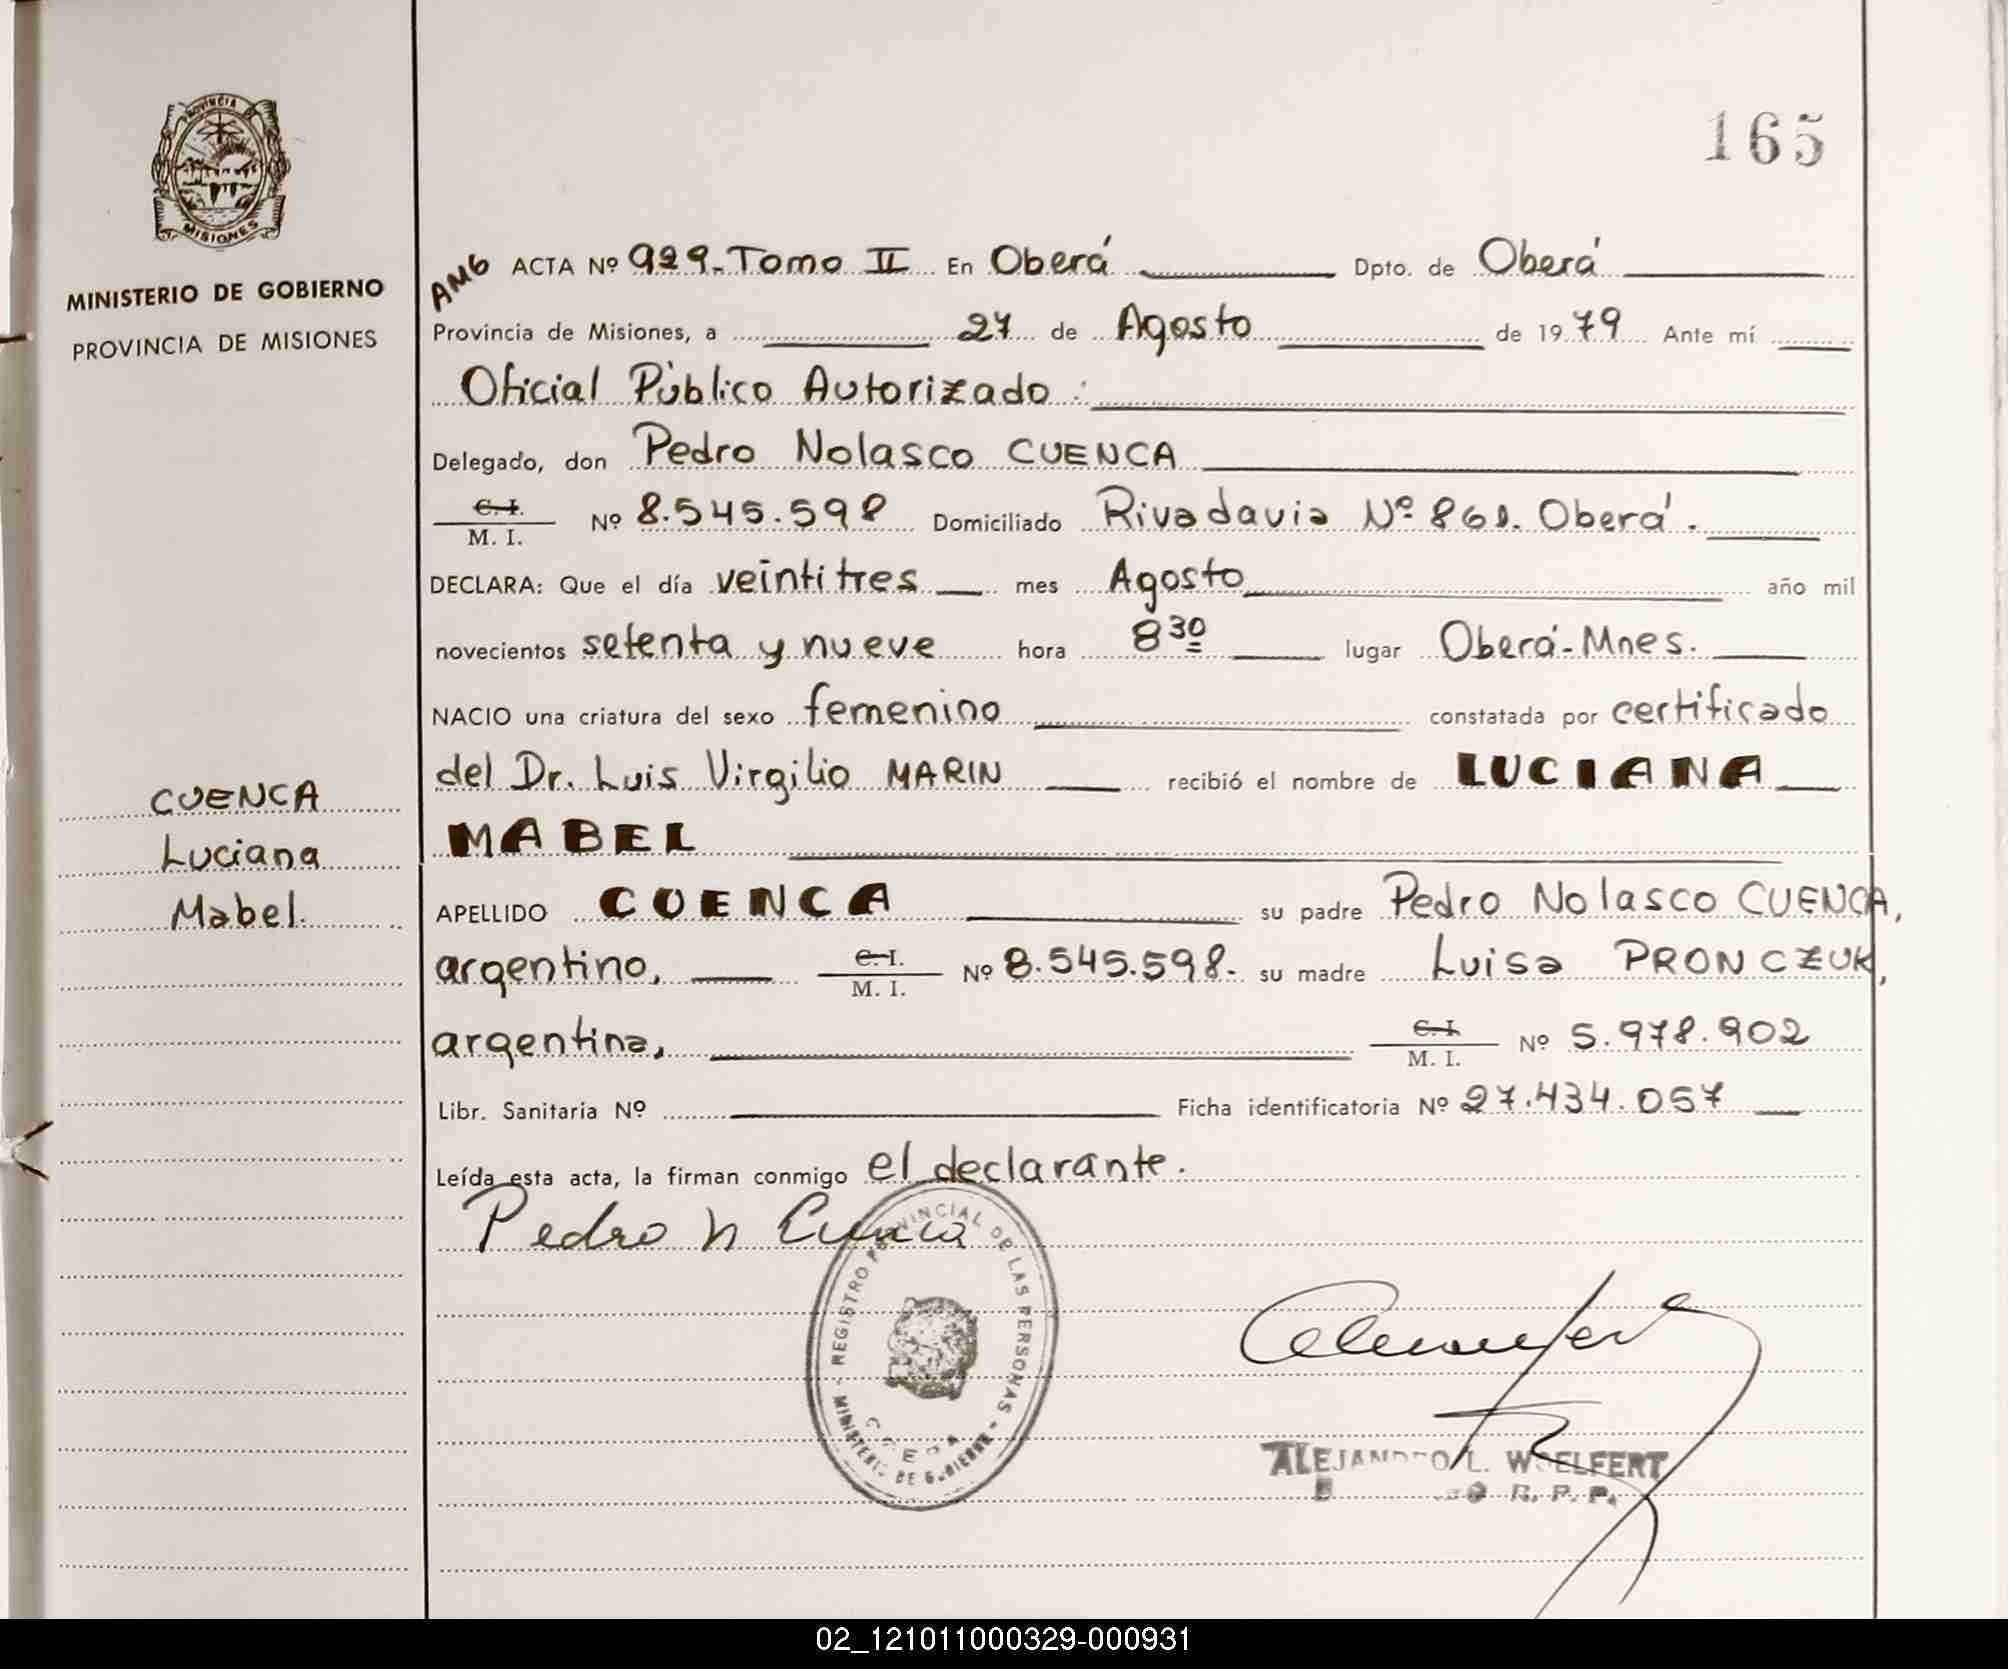 PROVINCIA
MISIONES
MINISTERIO DE GOBIERNO
PROVINCIA DE MISIONES
165
AMG ACTA Nº 929.-Tomo II En Oberá Dpto. de Oberá
Provincia de Misiones, a 27 de Agosto de 1979 Ante mí
Oficial Público Autorizado:
Delegado, don Pedro Nolasco CUENCA
C. I.
M. I. Nº 8.545.598 Domiciliado Rivadavia Nº 861. Oberá.
DECLARA: Que el día veintitres mes Agosto año mil
novecientos setenta y nueve hora 8 30 lugar Oberá-Mnes.
NACIO una criatura del sexo femenino constatada por certificado
del Dr. Luis Virgilio MARIN recibió el nombre de LUCIANA
MABEL
CUENCA
Luciana
Mabel.
APELLIDO CUENCA su padre Pedro Nolasco CUENCA,
argentino, C. I. M. I. Nº 8.545.598.- su madre Luisa PRONCZUK,
argentina, C. I. M. I. Nº 5.978.902
Libr. Sanitaria Nº Ficha identificatoria Nº 27.434.057
Leída esta acta, la firman conmigo el declarante.
Pedro N Cuenca
REGISTRO PROVINCIAL DE LAS PERSONAS - MINISTERIO DE GOBIERNO -
ALEJANDRO L. WOELFERT
R. P. P.
02_121011000329-000931